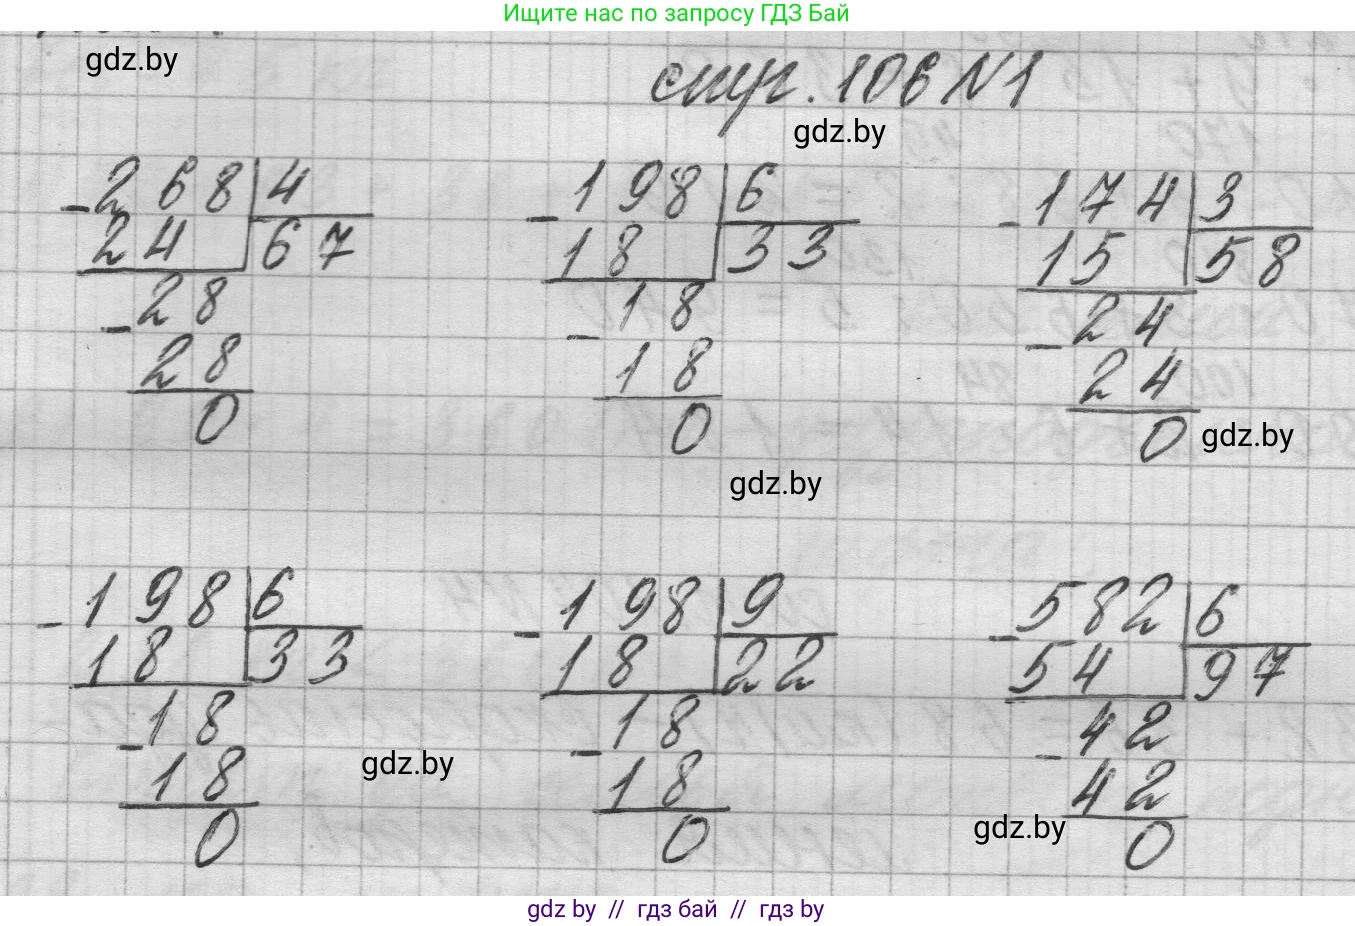 Ищите нас по запросу ГДЗ Бай
gdz.by
стр. 106 №1
gdz.by
- 268 | 4
24 | 67
- 28
28
0
- 198 | 6
18 | 33
- 18
18
0
- 174 | 3
15 | 58
- 24
24
0
gdz.by
gdz.by
- 198 | 6
18 | 33
- 18
18
0
gdz.by
- 198 | 9
18 | 22
- 18
18
0
- 582 | 6
54 | 97
- 42
42
0
gdz.by
gdz by // гдз бай // гдз by